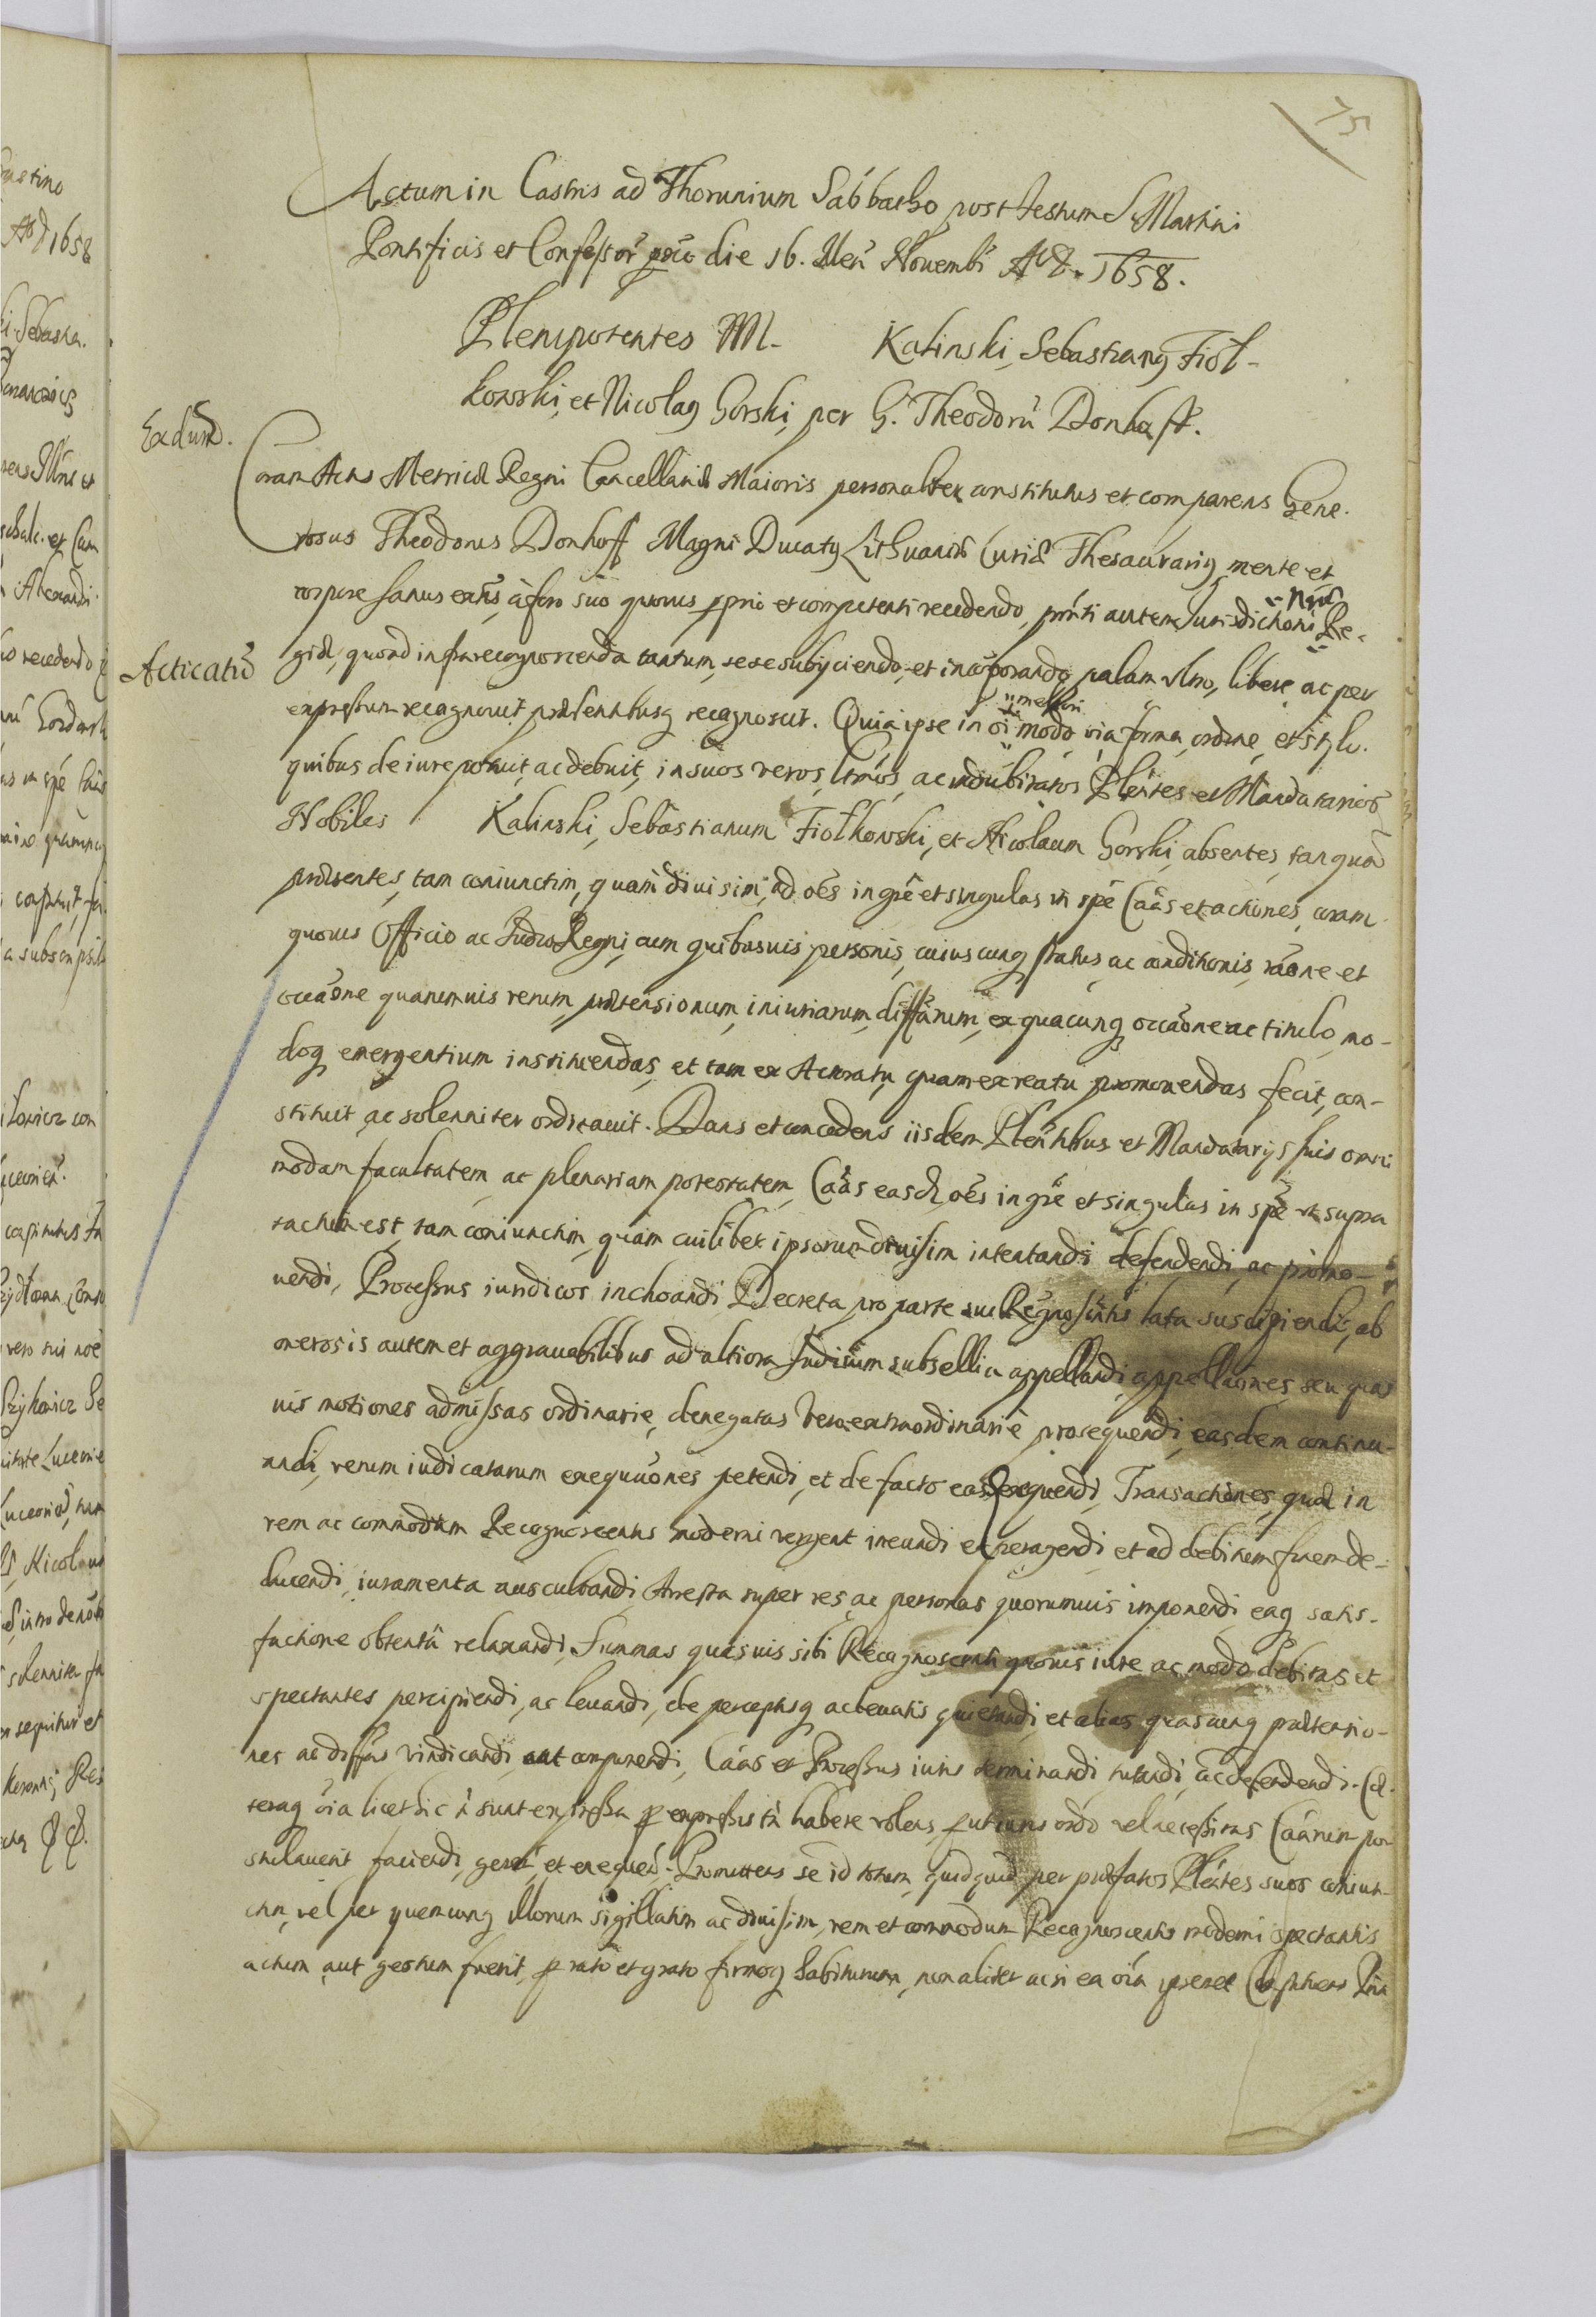 75
Actum in Castris ad Thorunium Sabbatho post festum S Martini
Pontificis et Confessor̃ pẽo die 16. Men̄ Nouemb̃ A°D. 1658.
Plenipotentes M. Kalinski, Sebastianꝯ Fiol-
kowski, et Nicolaꝯ Gorski, per G. Theodorũ Donhoff.
Exdund.
Coram Actis Metricæ Regni Cancellariæ Maioris personaliter constitutus et comparens Gene-
rosus Theodorus Donhoff Magni Ducatꝯ Lithuaniæ Curiæ Thesaurariꝯ, mente et
corpore sanus exñs, à foro suo quouis pprio et competenti recedendo, pñti autem Jurisdictioni Nrae Re-
Acticatũ
giæ, quoad infra recognoscenda tantum, sese subijciendo, et incorporando, palam, libere, ac per
expressum recognouit, præsentibusqꝫ recognoscit. Quia ipse in oĩ meliori modo via, forma, ordine, et stylo.
quibus de iure potuit, ac debuit, in suos veros, ltmos, ac indubitatos Pleñtes et Mandatarios
Nobiles Kalinski, Sebastianum Fiolkowski, et Nicolaum Gorski, absentes, tanquã
præsentes, tam coniunctim, quàm diuisim, ad oẽs in gñe et singulas in spẽ Caãs et actiones, coram
quouis Officio ac Iudicio Regni, cum quibusuis personis, cuiuscunqꝫ status ac conditionis, rãone et
occãone quarumuis rerum, prætensionum, iniuriarum, differñarum, ex quacunqꝫ occãone ac titulo, mo-
doqꝫ emergentium instituendas, et tam ex Actoratu, quam ex reatu promouendas fecit, con-
stituit, ac solenniter ordinauit. Dans et concedens iisdem Pleñtibus et Mandatarijs suis omni
modam facultatem, ac plenariam potestatem, Caãs easdꝫ oẽs in gñe et singulas in spẽ ut supra
tactum est, tam coniunctim, quàm cuilibet ipsorum diuisim intentandi, defendendi, ac promo-
uendi, Processus iuridicos inchoandi, Decreta pro parte sui Recgnoscentis lata suscipiendi, ab
onerosis autem et aggrauabilibus ad altiora Iudiciorum subsellia appellandi, appellãones seu quas
uis motiones admissas ordinarie, denegatas vero extraordinariè prosequendi, easdem continu-
andi, rerum iudicatarum exequũones petendi, et de facto eas exequendi, Transactiones, quæ in
rem ac commodum Recognoscentis moderni vergent ineundi et peragendi, et ad debitum finem de-
ducendi, iuramenta auscultandi, Arresta super res, ac personas quorumuis imponendi, eaqꝫ satis-
factione obtentâ relaxandi, Summas quasuis sibi Recognoscenti quouis iure ac modo debitas et
spectantes percipiendi, ac leuandi, de perceptisqꝫ ac leuatis quietandi, et alias quascunqꝫ prætensio-
nes ac differñas vindicandi, aut componendi, Caãs et Processus iuris terminandi, tutandi, ac defendendi. Cæ-
teraqꝫ oĩa licet hic ñ sunt expressa p expressis tñ habere volens, put iuris ordo vel necessitas Caãrum pos
stulauerit, faciendi, gerendi, et exequen̄. Promittens se id totum, quidquid per præfatos Pleñtes suos coniun-
ctim, vel per quemcunqꝫ illorum sigillatim ac diuisim, rem et commodum Recognoscentis moderni spectantis
actum aut gestum fuerit, p rato et grato firmoqꝫ habiturum, non aliter ac si ea oĩa ipsemet